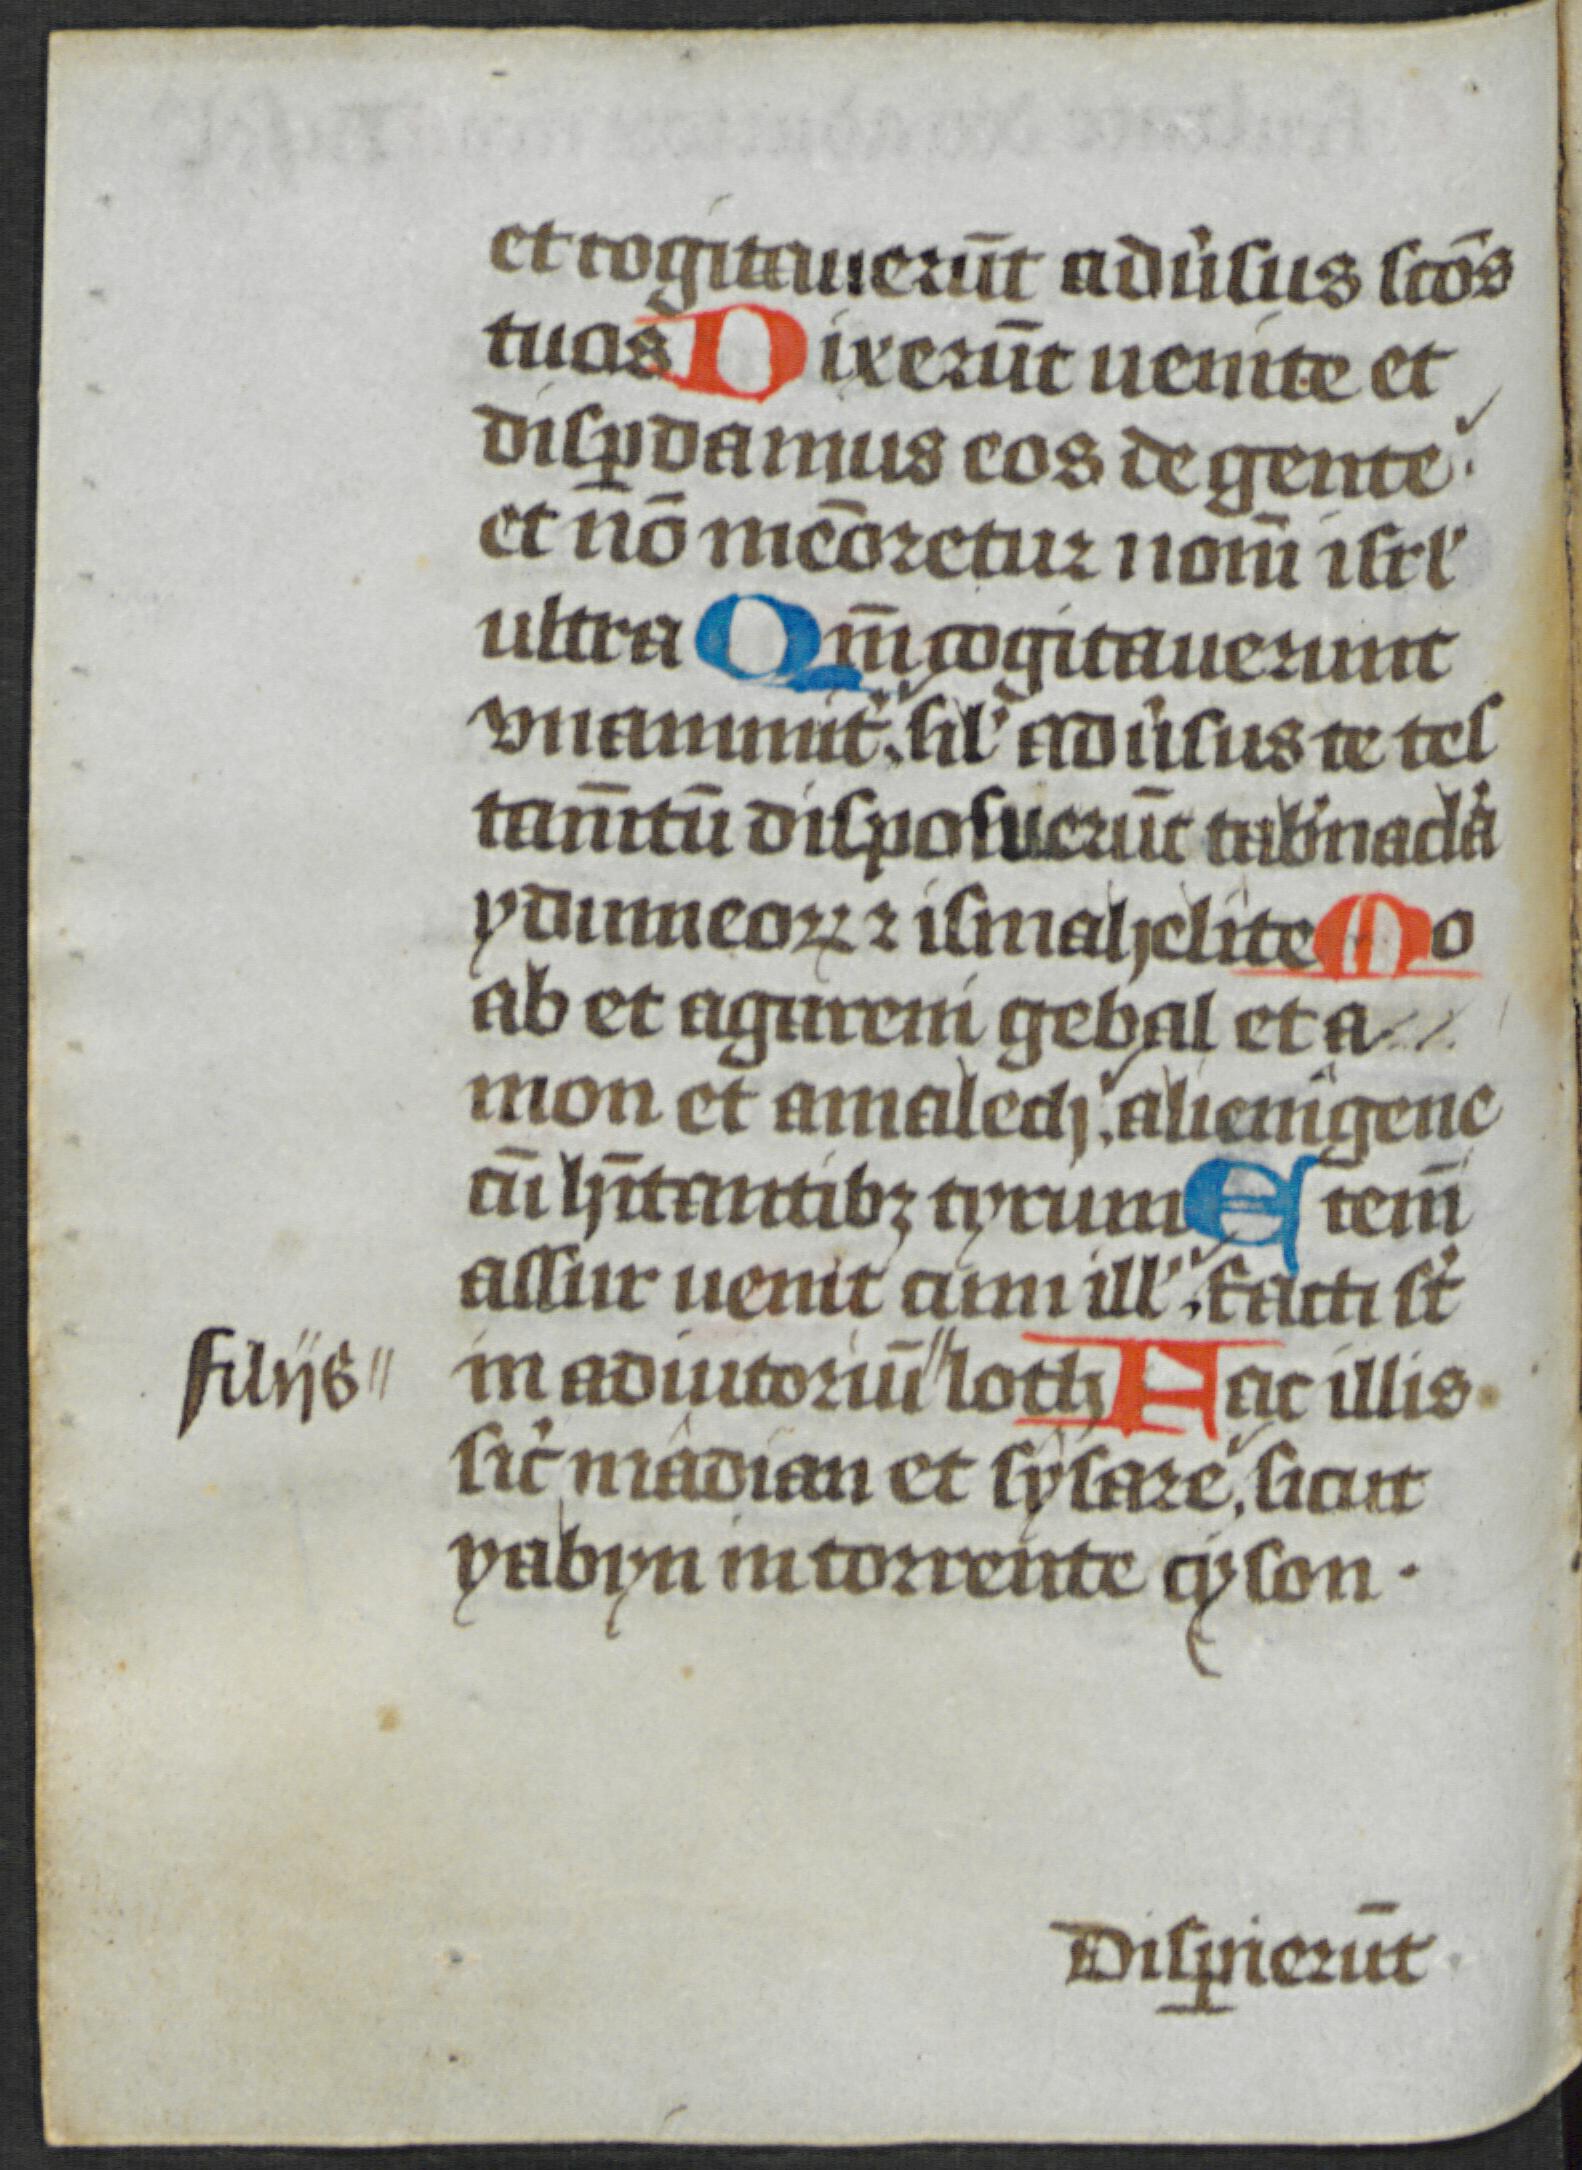 et cogitauerūt adu̓sus scōs
tuos Dixerūt uenite et
disꝑdamus eos de gente
et nō mēoretur nom̄ isrl̓
ultra Qm̄ cogitauerunt
vnanimit̓ sil̓ adu̓sus te tes
tam̄tū disposuerūt tab̓nacl̓a
ydumeoꝝ ⁊ ismahelite Mo
ab et agareni gebal et a
mon et amalech alienigene
cū hītantibꝫ tyrum Etem̄
assur uenit cum ill̓ facti st̓
filiis in adiutoriū loth Fac illis
sic̓ madian et sysare sicut
yabyn in torrente cyson ·
Disꝑierūt